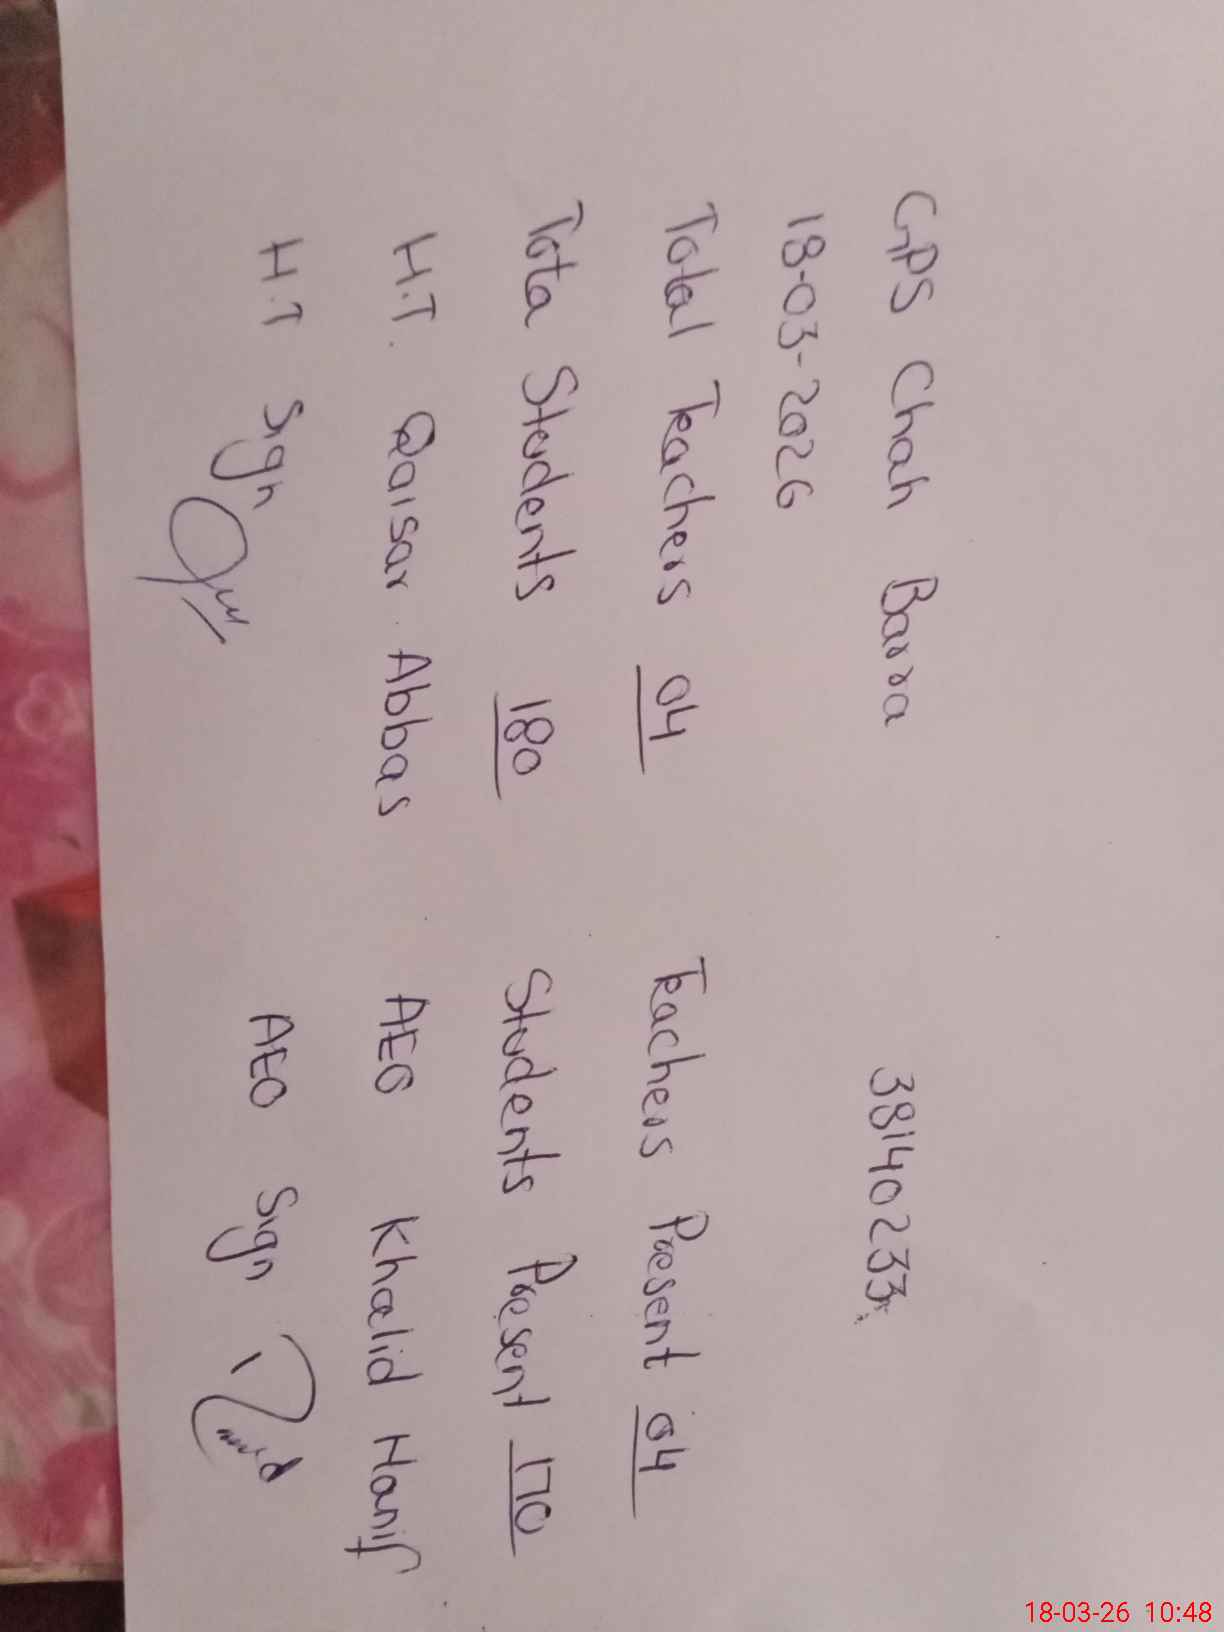 GPS Chah Barra 38140233
18-03-2026
Total Teachers 04 Teachers Present 04
Tota Students 180 Students Present 170
H.T. Qaisar Abbas AEO Khalid Hanif
H.T Sign AEO Sign
18-03-26 10:48